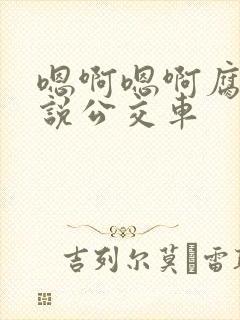 嗯啊嗯啊腐
說公交車
吉列尔莫·雷